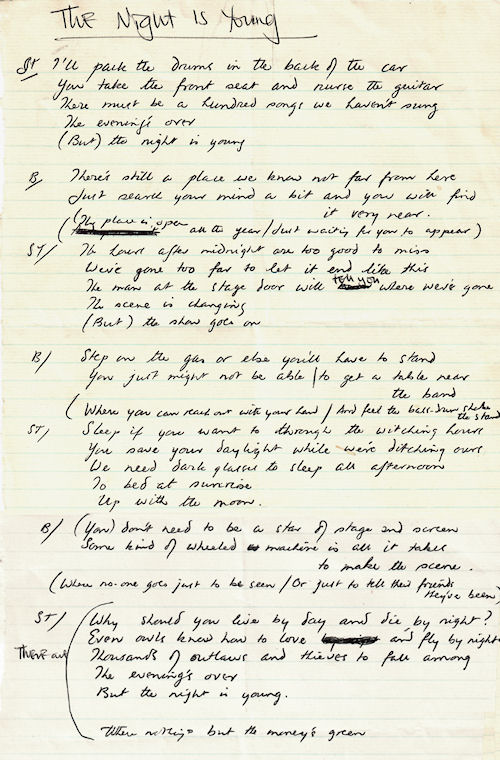 The Night Is Young
ST I'll pack the drums in the back of the car
You take the front seat and nurse the guitar
There must be a hundred songs we haven't sung
The evening's over
(But) the night is young
B There's still a place we know not far from here
Just search your mind a bit and you will find
it very near.
(The place is open all the year / Just waiting for you to appear)
ST/ The hours after midnight are too good to miss
We've gone too far to let it end like this
The man at the stage door will tell you where we've gone
The scene is changing
(But) the show goes on
B/ Step on the gas or else you'll have to stand
You just might not be able / to get a table near
the band
(Where you can reach out with your hand / And feel the bass-drum shake
the stand
ST/ Sleep if you want to through the witching hours
You save your daylight while we're ditching ours
We need dark glasses to sleep all afternoon
To bed at sunrise
Up with the moon.
B/ (You) don't need to be a star of stage and screen
Some kind of wheeled machine is all it takes
to make the scene.
(Where no-one goes just to be seen / Or just to tell their friends
they've been)
ST/ Why should you live by day and die by night?
Even owls know how to love and fly by night
There are Thousands of outlaws and thieves to fall among
The evening's over
But the night is young.
Where nothing but the money's green